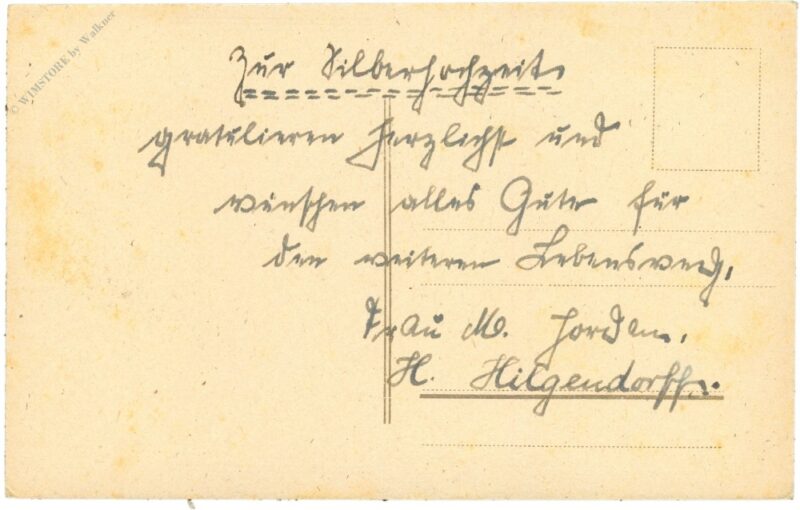 © WIMSTORE by Walkner
Zur Silberhochzeit
gratulieren herzlichst und
wünschen alles Gute für
den weiteren Lebensweg.
Frau M. Jordan.
H. Hilgendorff.